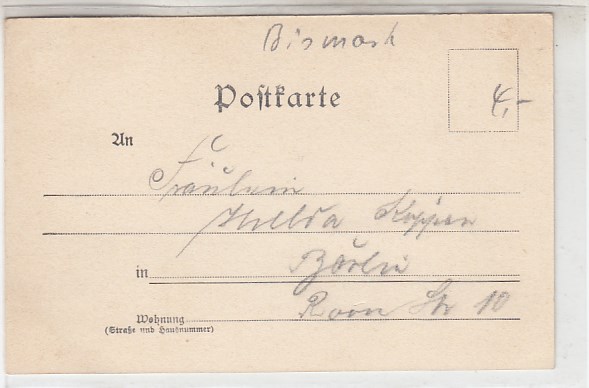 Bismark
Postkarte
4,-
An
Fräulein
Hilda
in Börlin
Roon Str 10
Wohnung
(Straße und Hausnummer)